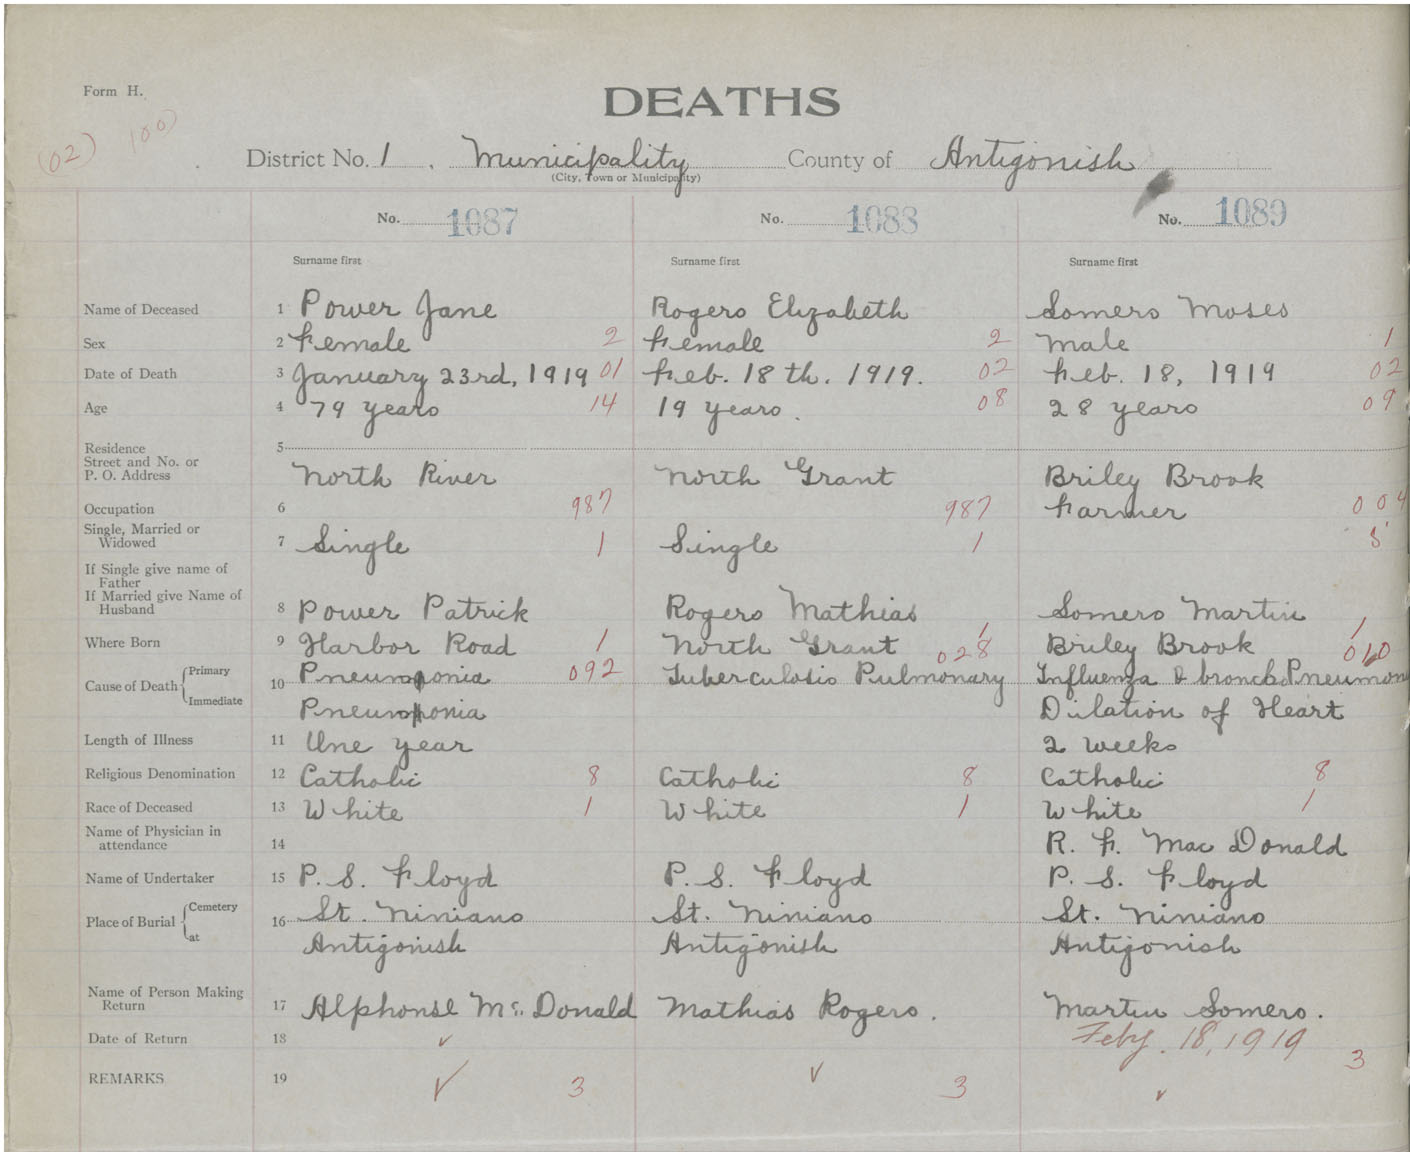 Form H.
DEATHS
(02) 100
District No. 1. Municipality County of Antigonish
(City, Town or Municipality)
No. 1087 No. 1088 No. 1089
Surname first Surname first Surname first
Name of Deceased 1 Power Jane Rogers Elizabeth Somers Moses
Sex 2 Female 2 Female 2 Male 1
Date of Death 3 January 23rd, 1919 01 Feb. 18th. 1919. 02 Feb. 18, 1919 02
Age 4 79 years 14 19 years. 08 28 years 09
Residence 5
Street and No. or
P. O. Address North River North Grant Briley Brook
Occupation 6 987 987 Farmer 004
Single, Married or
Widowed 7 Single 1 Single 1
If Single give name of
Father
If Married give Name of
Husband 8 Power Patrick Rogers Mathias Somers Martin
Where Born 9 Harbor Road 1 North Grant 1 Briley Brook 1
Cause of Death Primary 10 Pneumonia 092 Tuberculosis Pulmonary 028 Influenza & broncho Pneumon 010
Immediate Pneumonia Dilation of Heart
Length of Illness 11 One year 2 weeks
Religious Denomination 12 Catholic 8 Catholic 8 Catholic 8
Race of Deceased 13 White 1 White 1 White 1
Name of Physician in
attendance 14 R. F. Mac Donald
Name of Undertaker 15 P. S. Floyd P. S. Floyd P. S. Floyd
Place of Burial Cemetery 16 St. Ninians St. Ninians St. Ninians
at Antigonish Antigonish Antigonish
Name of Person Making
Return 17 Alphonse Mc. Donald Mathias Rogers. Martin Somers.
Date of Return 18 Feby. 18, 1919
REMARKS 19 3 3 3